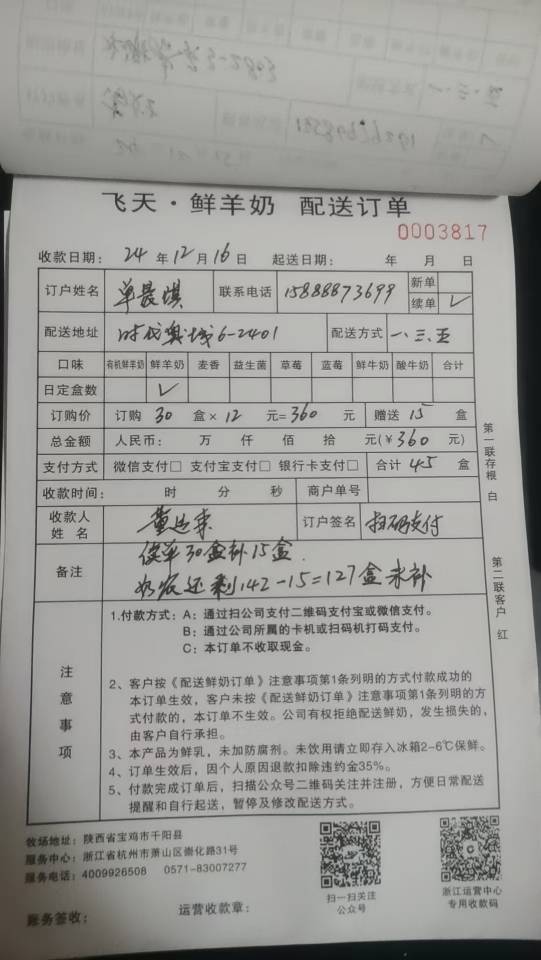 飞天·鲜羊奶 配送订单
0003817
收款日期: 24 年 12 月 16 日 起送日期: 年 月 日
订户姓名 单晨琪 联系电话 15888873699 新单
续单 ✓
配送地址 时代奥城6-2401 配送方式 一、三、五
口味 有机鲜羊奶 鲜羊奶 麦香 益生菌 草莓 蓝莓 鲜牛奶 酸牛奶 合计
日定盒数 ✓
订购价 订购 30 盒× 12 元=360 元 赠送 15 盒
总金额 人民币: 万 仟 佰 拾 元(¥360 元)
支付方式 微信支付□ 支付宝支付□ 银行卡支付□ 合计 45 盒
收款时间: 时 分 秒 商户单号
收款人姓名 董 订户签名 扫码支付
备注 30盒补15盒.
还剩142-15=127盒未补
第一联存根 白
第二联客户 红
注意事项
1.付款方式: A: 通过扫公司支付二维码支付宝或微信支付。
B: 通过公司所属的卡机或扫码机打码支付。
C: 本订单不收取现金。
2、客户按《配送鲜奶订单》注意事项第1条列明的方式付款成功的
本订单生效，客户未按《配送鲜奶订单》注意事项第1条列明的方
式付款的，本订单不生效。公司有权拒绝配送鲜奶，发生损失的，
由客户自行承担。
3、本产品为鲜乳，未加防腐剂。未饮用请立即存入冰箱2-6℃保鲜。
4、订单生效后，因个人原因退款扣除违约金35%。
5、付款完成订单后，扫描公众号二维码关注并注册，方便日常配送
提醒和自行起送，暂停及修改配送方式。
牧场地址: 陕西省宝鸡市千阳县
服务中心: 浙江省杭州市萧山区崇化路31号
服务电话: 4009926508 0571-83007277
扫一扫关注
公众号
浙江运营中心
专用收款码
账务签收: 运营收款章: